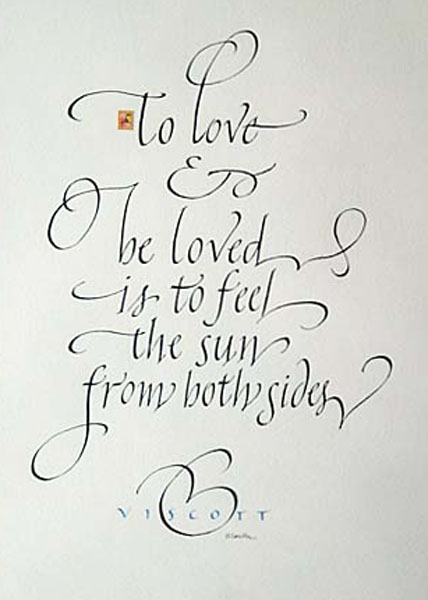 To love
&
be loved
is to feel
the sun
from both sides
VISCOTT